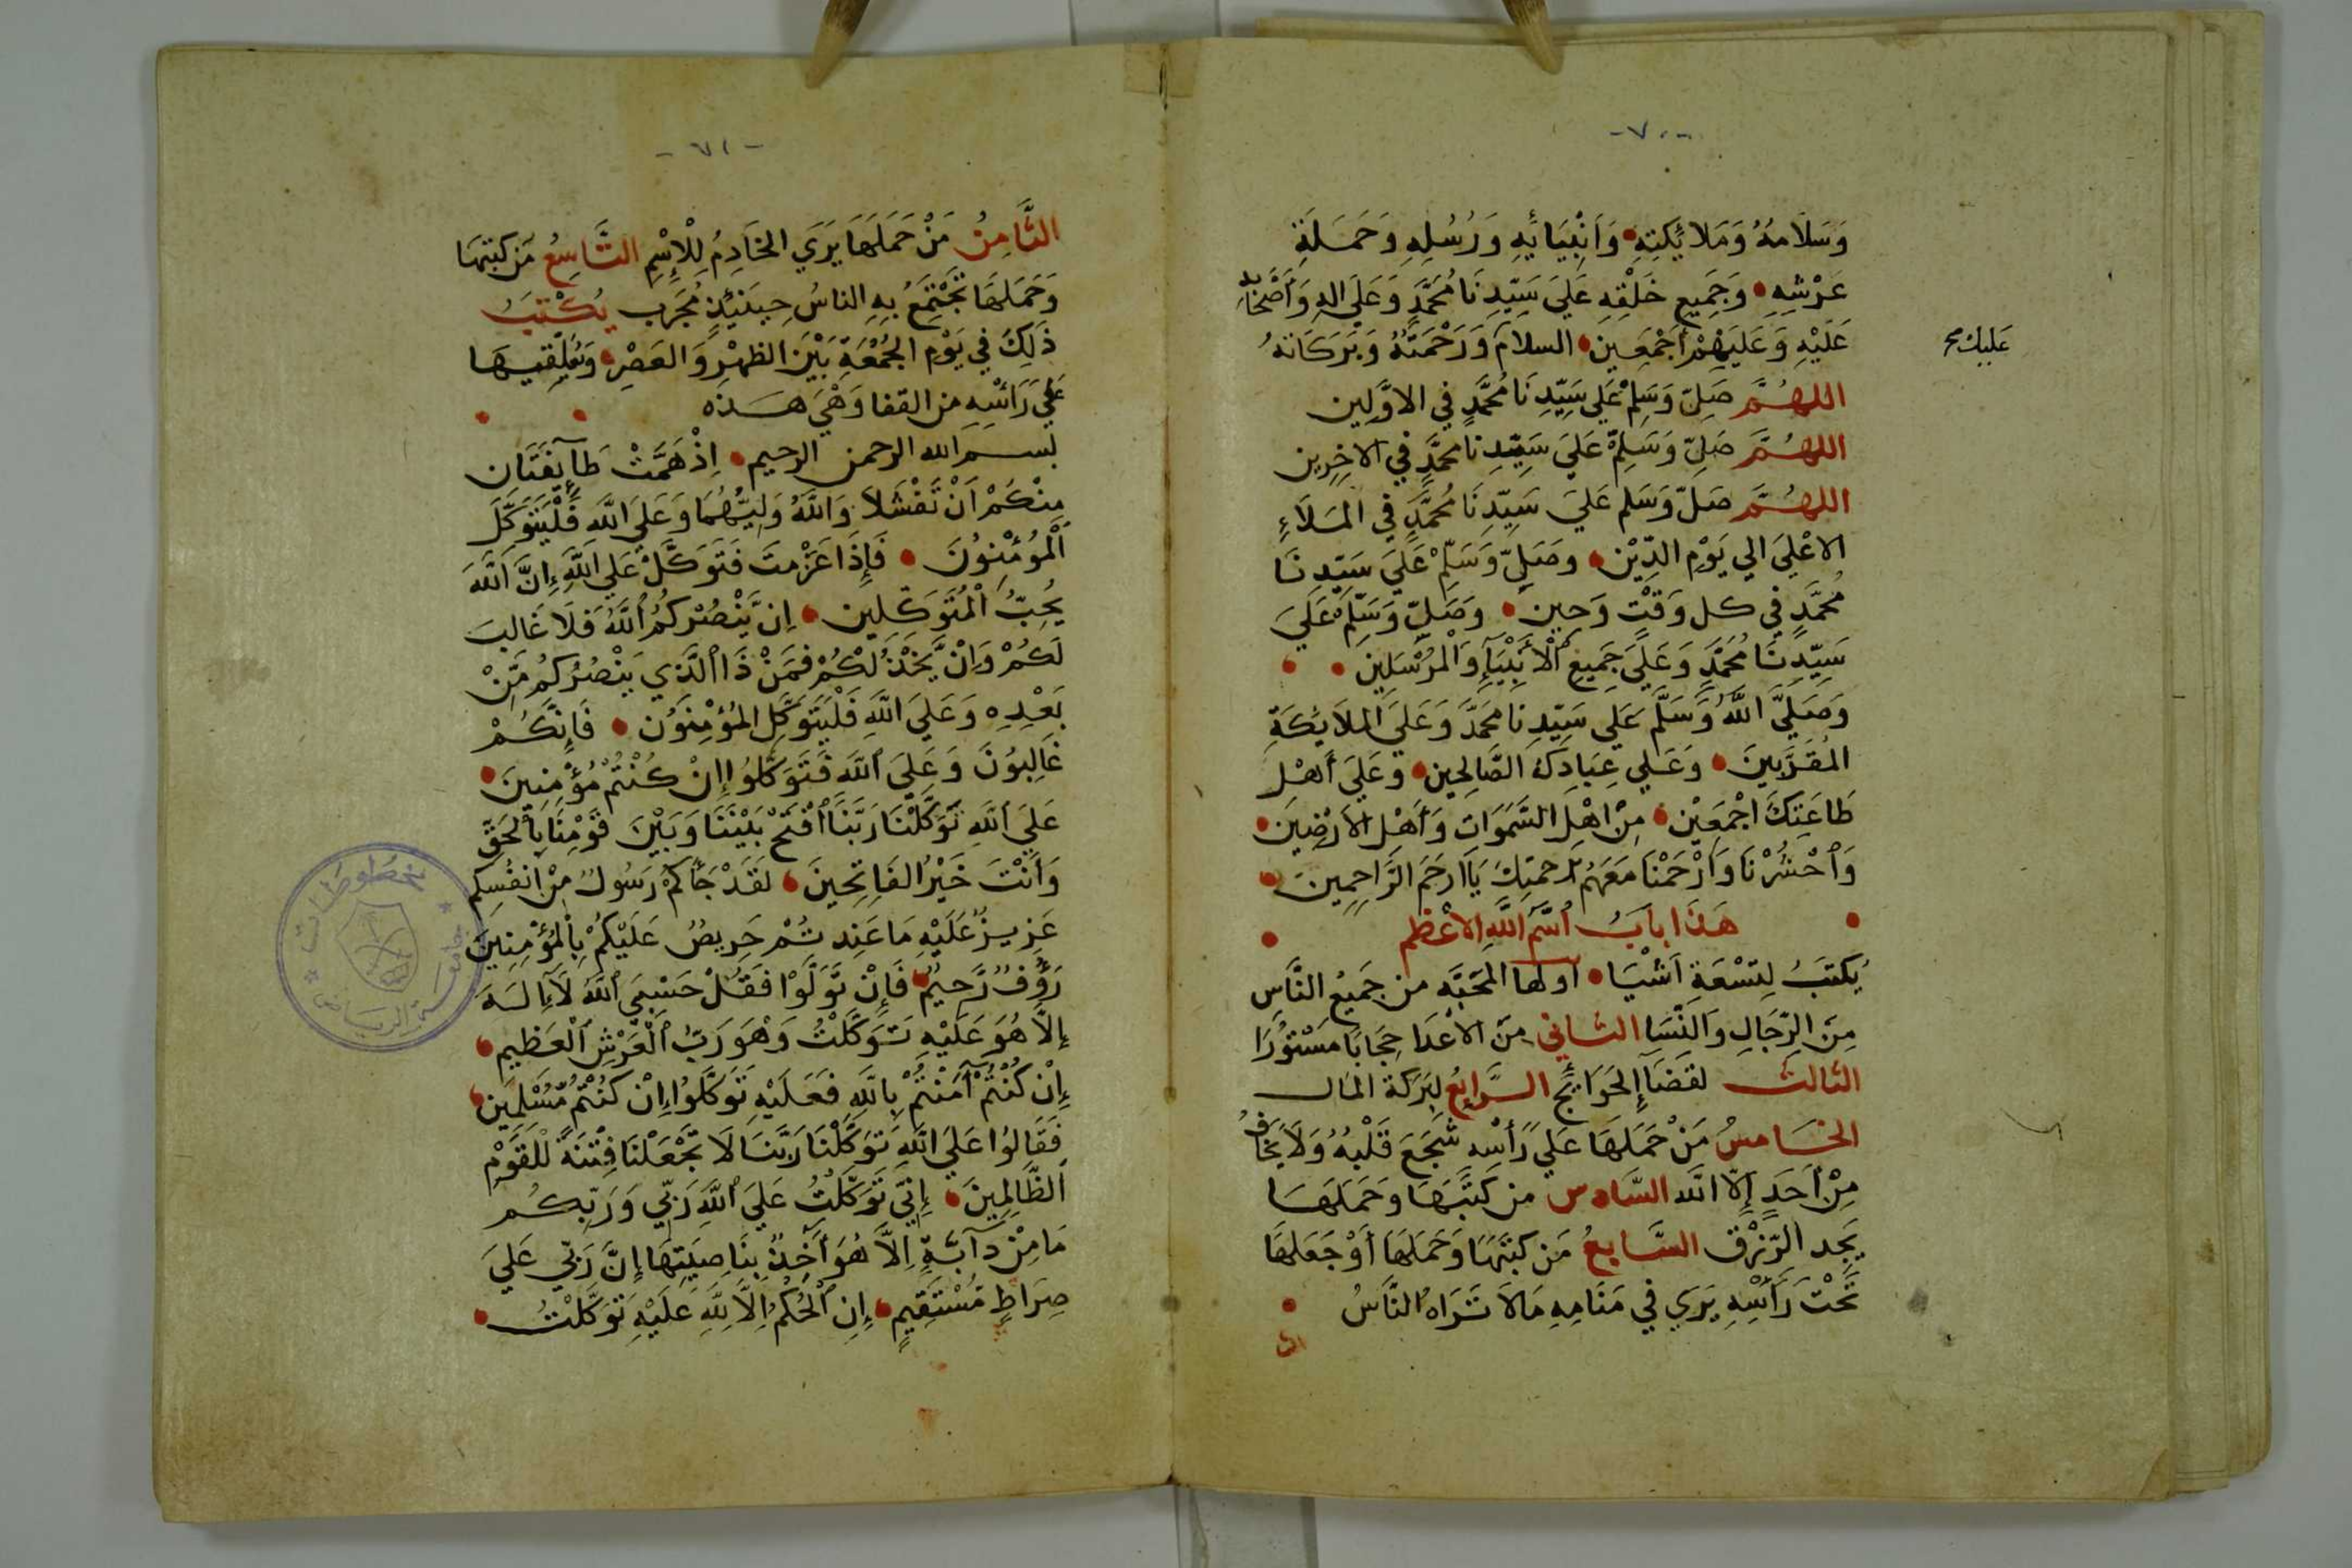 -٧٠-
وَسَلَامُهُ وَمَلَائِكَتِهِ وَاَنْبِيَائِهِ وَرُسُلِهِ وَحَمَلَةِ
عَرْشِهِ وَجَمِيعِ خَلْقِهِ عَلَي سَيِّدِنَا مُحَمَّدٍ وَعَلَي الِهِ وَأَصْحَابِهِ
عَلَيْهِ وَعَلَيْهِمْ أَجْمَعِين السلام وَرَحْمَتُهُ وَبَرَكَاتهُ
عليك
اللهُمَّ صَلِّ وَسَلِّمْ عَلَي سَيِّدِنَا مُحَمَّدٍ في الاوَّلِين
اللهُمَّ صَلِّ وَسَلِّمْ عَلَي سَيِّدِنا محمَّدٍ في الاخِرِين
اللهُمَّ صَلِّ وَسَلِم عَلَي سَيِّدِنَا مُحَمَّدٍ في المَلَاءِ
الاعْلَي الي يَوْمِ الدِّيْن وصَلِّ وَسَلِّمْ عَلَي سَيِّدِنَا
مُحَمَّدٍ في كل وَقْتٍ وَحين وَصَلِّ وَسَلِّمْ عَلَي
سَيِّدِنَا مُحَمَّدٍ وَعَلَي جَمِيعِ الْأَنْبِيَآءِ وَالْمُرْسَلِين
وَصَلَّي اللَّهُ وَسَلَّم عَلَي سَيِّدِنا محَمَّدٍ وَعَلَي المَلَايِكَةِ
المُقَرَّبِينَ وَعَلي عِبَادِكَ الصَّالِحين وَعَلَي أَهْل
طَاعَتِكَ اجْمَعِيْن مِنْ اهْلِ السَّمَوَات وَأَهْل الأَرْضِين
وَٱحْشُرْنَا وَٱرْحَمْنَا مَعَهُم بِرَحمتِكَ يَاارحَمَ الرَّاحِمِينَ
هَذَا بابُ اسْمِ اللهِ الاعْظَم
يُكتَبُ لِتِسْعَةِ اَشْيَا اولها المحَبَّه من جَمِيعِ النَّاسِ
مِنَ الرِّجَالِ وَالنِّسَا الثاني مِنَ الأعْدَا حِجَابًا مَسْتُورًا
الثالث لقضَآءِ الحَوَايِج الرَّابِعُ لِبَرَكَة المَال
الخَامسُ مَنْ حَمَلَهَا عَلي رَأسْه شَجَعَ قَلْبُهُ وَلَا يَخَافُ
مِنْ أَحَدٍ إِلَّا الله السَّادس من كَتَبَهَا وَحَمَلَهَا
يَجِد الرِّزْق السَّابِعُ مَن كتَبَهَا وَحَمَلهَا أَوْ جَعَلهَا
تَحْتَ رَأْسِهِ يَرَي في مَنَامِهِ مَالَا تَرَاهُ النَّاسُ
-٧١-
الثَّامِنُ مَنْ حَمَلَهَا يَرَي الخَادِمُ لِلْإِسْمِ التَّاسِعُ مَن كتبهَا
وَحَمَلهَا تَجْتَمِعُ بِهِ الناسُ حِينَئِذٍ مُجَرَب يُكْتَبُ
ذَلِكَ في يَوْمِ الجُمْعَةِ بَيْنَ الظهْرِ وَالعَصْرِ وَتُعَلِّقيهَا
عَلَي رَأَسِهِ من القفا وَهْيَ هَذِه
بسم الله الرحمن الرحيم اِذْ هَمَّتْ طَآئِفَتَان
مِنْكُمْ اَنْ تَفْشَلَا وَاللَّهُ وَلِيُّهُمَا وَعَلَي اللَّهِ فَلْيَتَوَكَّلِ
اَلْمُؤْمِنُونَ فَإِذَا عَزَمْتَ فَتَوَكَّلْ عَلَي اَللَّهِ إِنَّ اَللَّهَ
يُحِبُّ اُلْمُتَوَكِّلِين اِن يَّنْصُرْكُمُ اُللَّهُ فَلَا غَالِبَ
لَكُمْ وَاِنْ يَّخْذُلْكُمْ فَمَنْ ذَا اَلَّذِي يَنْصُرُكُم مِّنْ
بَعْدِهِ وَعَلَي اَللَّهِ فَلْيَتَوَكَّلِ المُؤْمِنُون فَإِنَّكُمْ
غَالِبُونَ وَعَلَي اَللَّهِ فَتَوَكَّلُوا إِنْ كُنْتُمْ مُؤْمِنِينَ
عَلَي اَللَّهِ تَوَكَّلْنَا رَبَّنَا اَفْتَحْ بَيْنَنَا وَبَيْنَ قَوْمِنَا بِالْحَقِّ
وَأَنْتَ خَيْرُ الفَاتِحِينَ لَقَدْ جَآَكُمْ رَسُولٌ مِنْ انفُسِكم
عَزِيزٌ عَلَيْهِ مَا عَنِتُمْ حَرِيصٌ عَلَيْكُمْ بِالْمُؤْمِنِينَ
رَؤُفٌ رَّحِيْمٌ فَإِنْ تَوَلَّوْا فَقُلْ حَسْبِيَ اَللَّهُ لَآإِلَهَ
إِلَّا هُوَ عَلَيْهِ تَوَكَّلْتُ وَهْوَ رَبُّ اَلْعَرْشِ اَلْعَظِيمِ
إِنْ كُنْتُمْ آمَنْتُمْ بِاللَّهِ فَعَلَيْهِ تَوَكَّلُوا إِنْ كُنْتُمْ مُّسْلِمِين
فَقَالُوا عَلَي اللَّهِ تَوَكَّلْنَا رَبَّنَا لَا تَجْعَلْنَا فِتْنَةً لِلْقَوْمِ
اَلظَّالِمِينَ إِنِّي تَوَكَّلْتُ عَلَي اَللَّهِ رَبِّي وَرَبِّكُم
مَا مِنْ دَآبَّةٍ اِلَّا هُوَ آَخِذٌ بِنَاصِيَتِهَا إِنَّ رَبِّي عَلَي
صِرَاطٍ مُسْتَقِيمٍ إِنِ اَلْحُكْمُ اِلَّا لِلَّهِ عَلَيْهِ تَوَكَّلْتُ
مخطوطات
جامعة الرياض